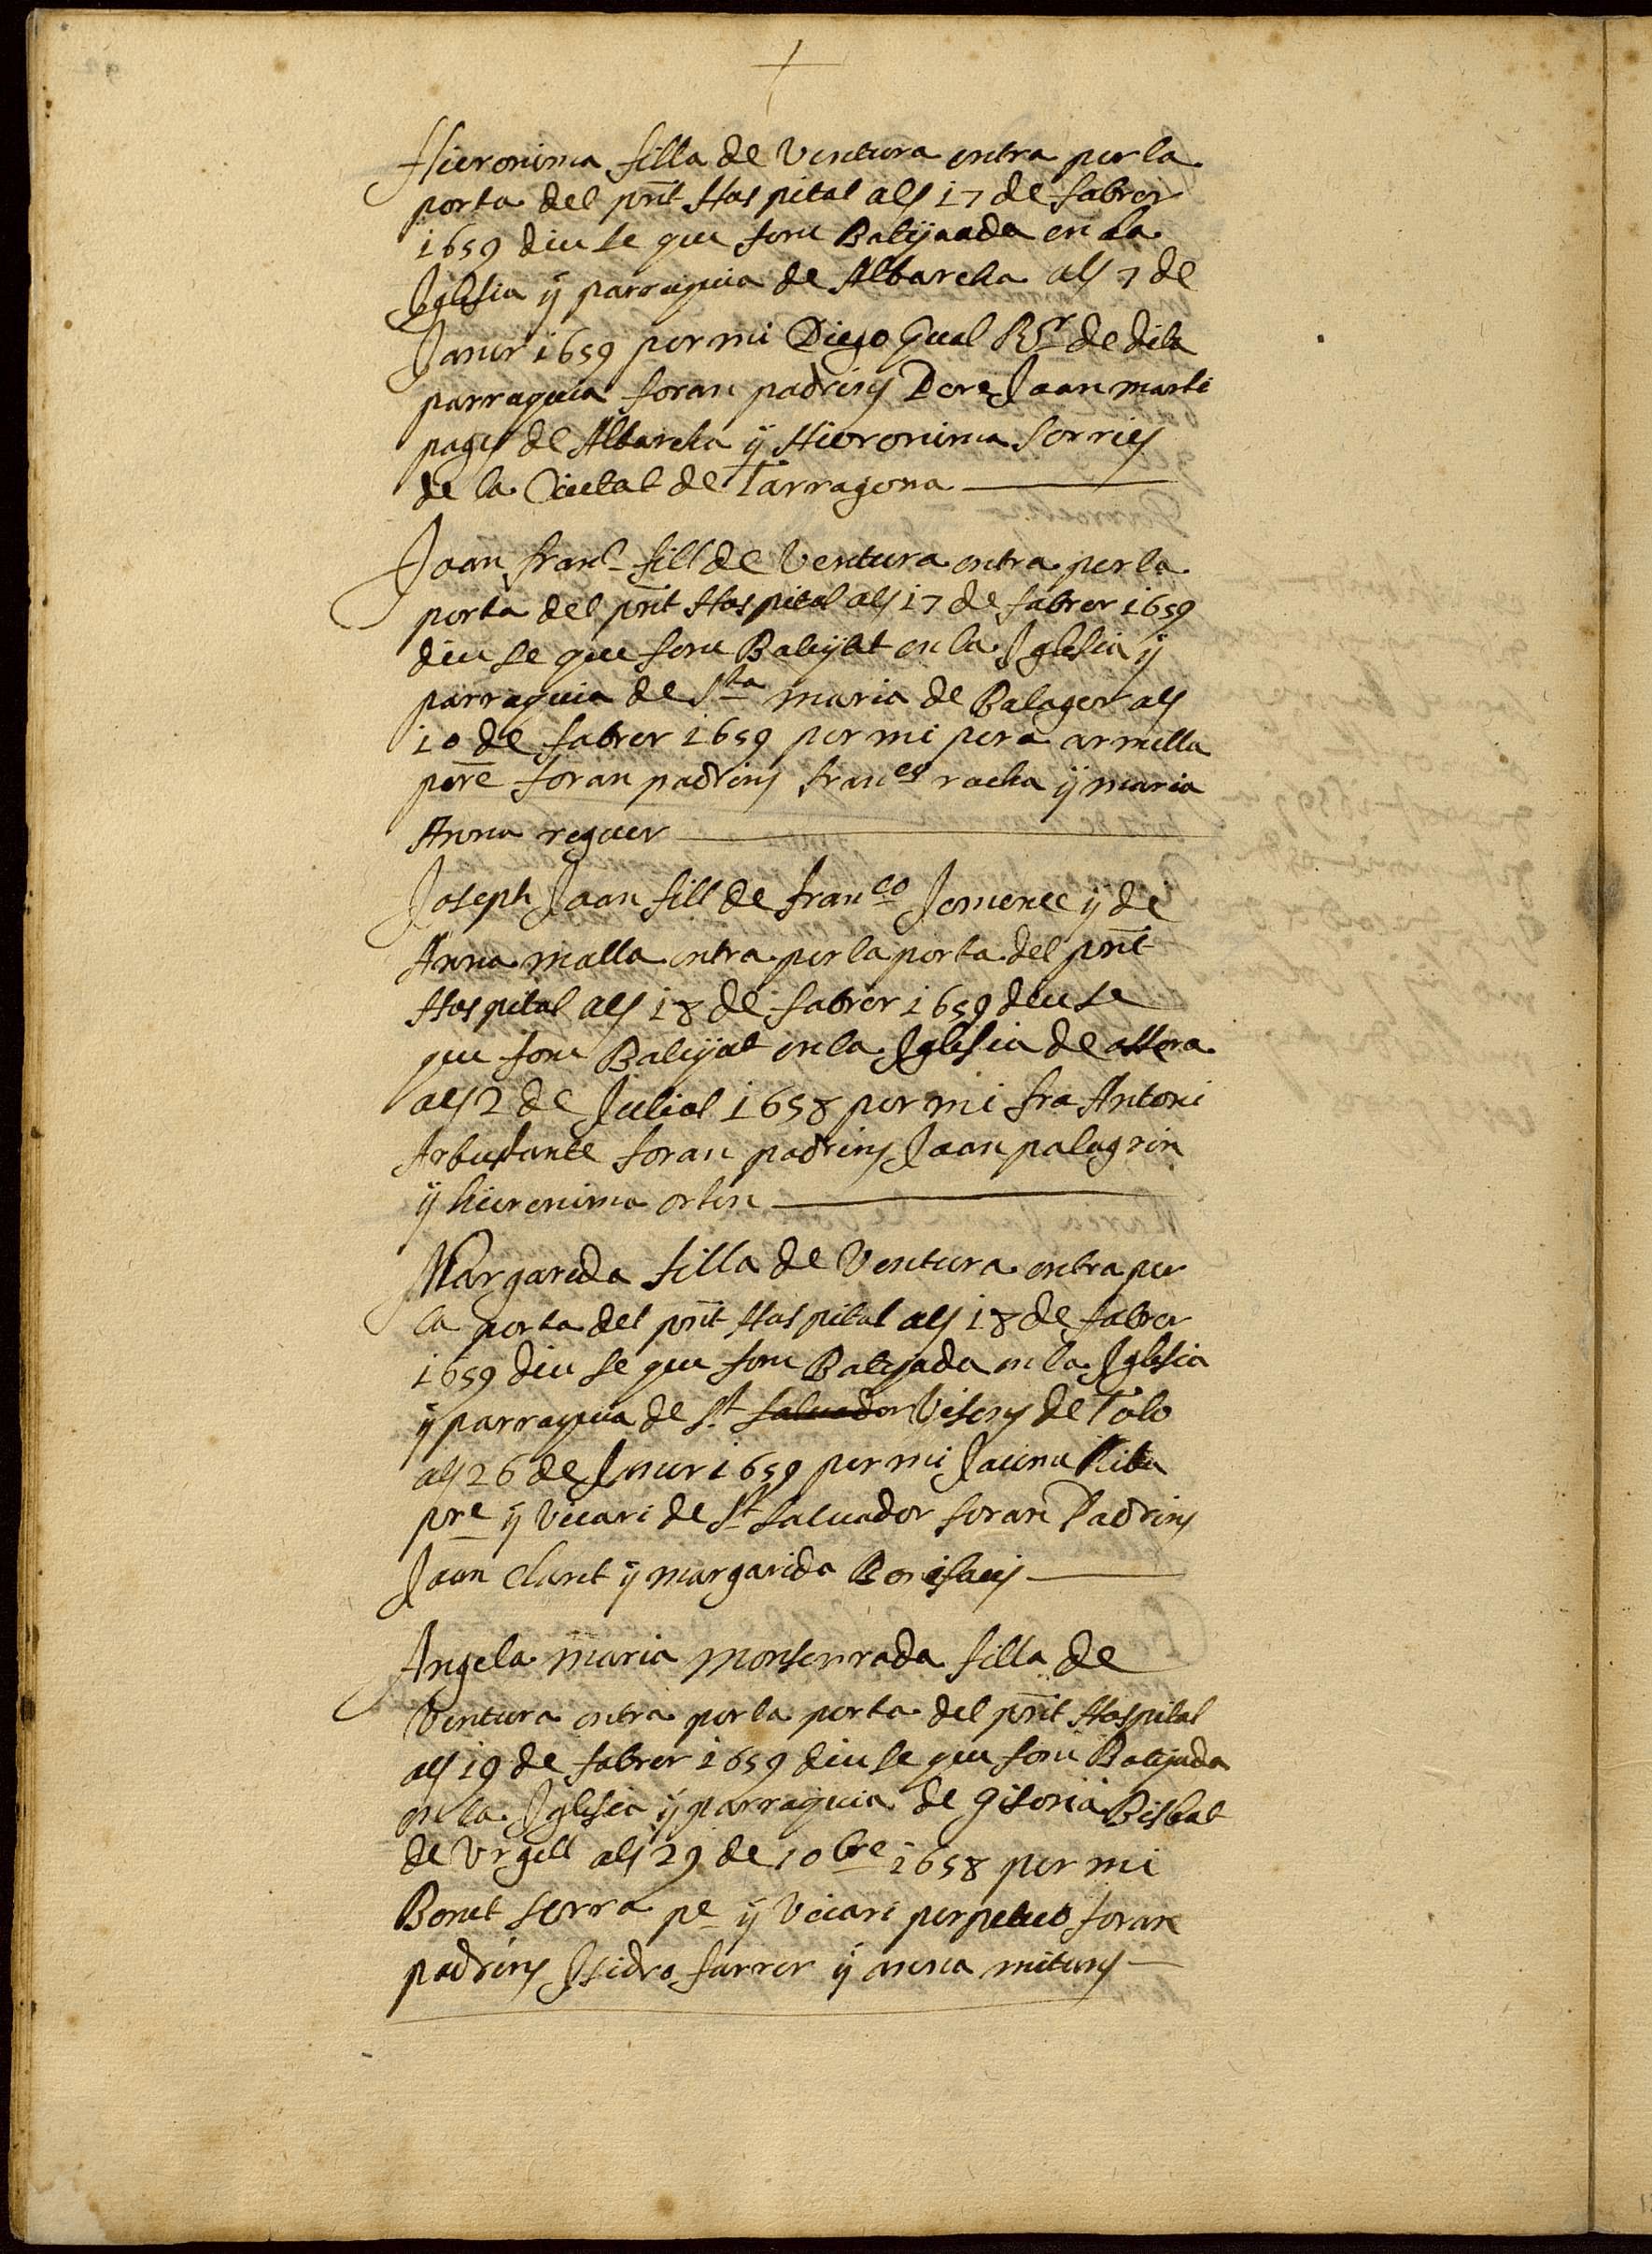 Hieronima filla de Ventura entra per la
porta del pnt Hospital als 17 de fabrer
1659 diu se que fonc Batijaada en la
Iglesia ÿ parraquia de Albarcha als 7 de
Janer 1659 per mi Diego Gual Rr de dita
parraquia foran padrins Pere Joan marti
pages de Albarcha ÿ Hieronima
de la Ciutat de Tarragona
Joan franc fill de Ventura entra per la
porta del pnt Hospital als 17 de fabrer 1659
diu se que fonc Batijat en la Iglesia ÿ
parraquia de Sta maria de Balager als
10 de fabrer 1659 per mi pera armilla
pere foran padrins franes rocha ÿ maria
Anna reguer
Joseph Joan fill de franco Jemenec ÿ de
Anna malla entra per la porta del pnt
Hospital als 18 de fabrer 1659 diu se
que fonc Batijat en la Iglesia de
als 2 de Juliol 1658 per mi fra Antoni
foran padrins Joan palagrin
ÿ hieronima
Margarida filla de Ventura entra per
la porta del pnt Hospital als 18 de fabrer
1659 diu se que fonc Batijada en la Iglesia
ÿ parraquia de St Salvador Visens de Tolo
als 26 de Janer 1659 per mi Jaume Riba
pre ÿ Vicari de St Saluador foran Padrins
Joan claret ÿ margarida Bonifaci
Angela maria monserrada filla de
Ventura entra per la porta del pnt Hospital
als 19 de fabrer 1659 diu se que fonc Batijada
en la Iglesia ÿ parraquia de Bisbat
de Vrgell als 29 de 10bre 1658 per mi
Bonet serra pe ÿ Vicari perpetuo foran
padrins Isidro farrer ÿ anna mitans